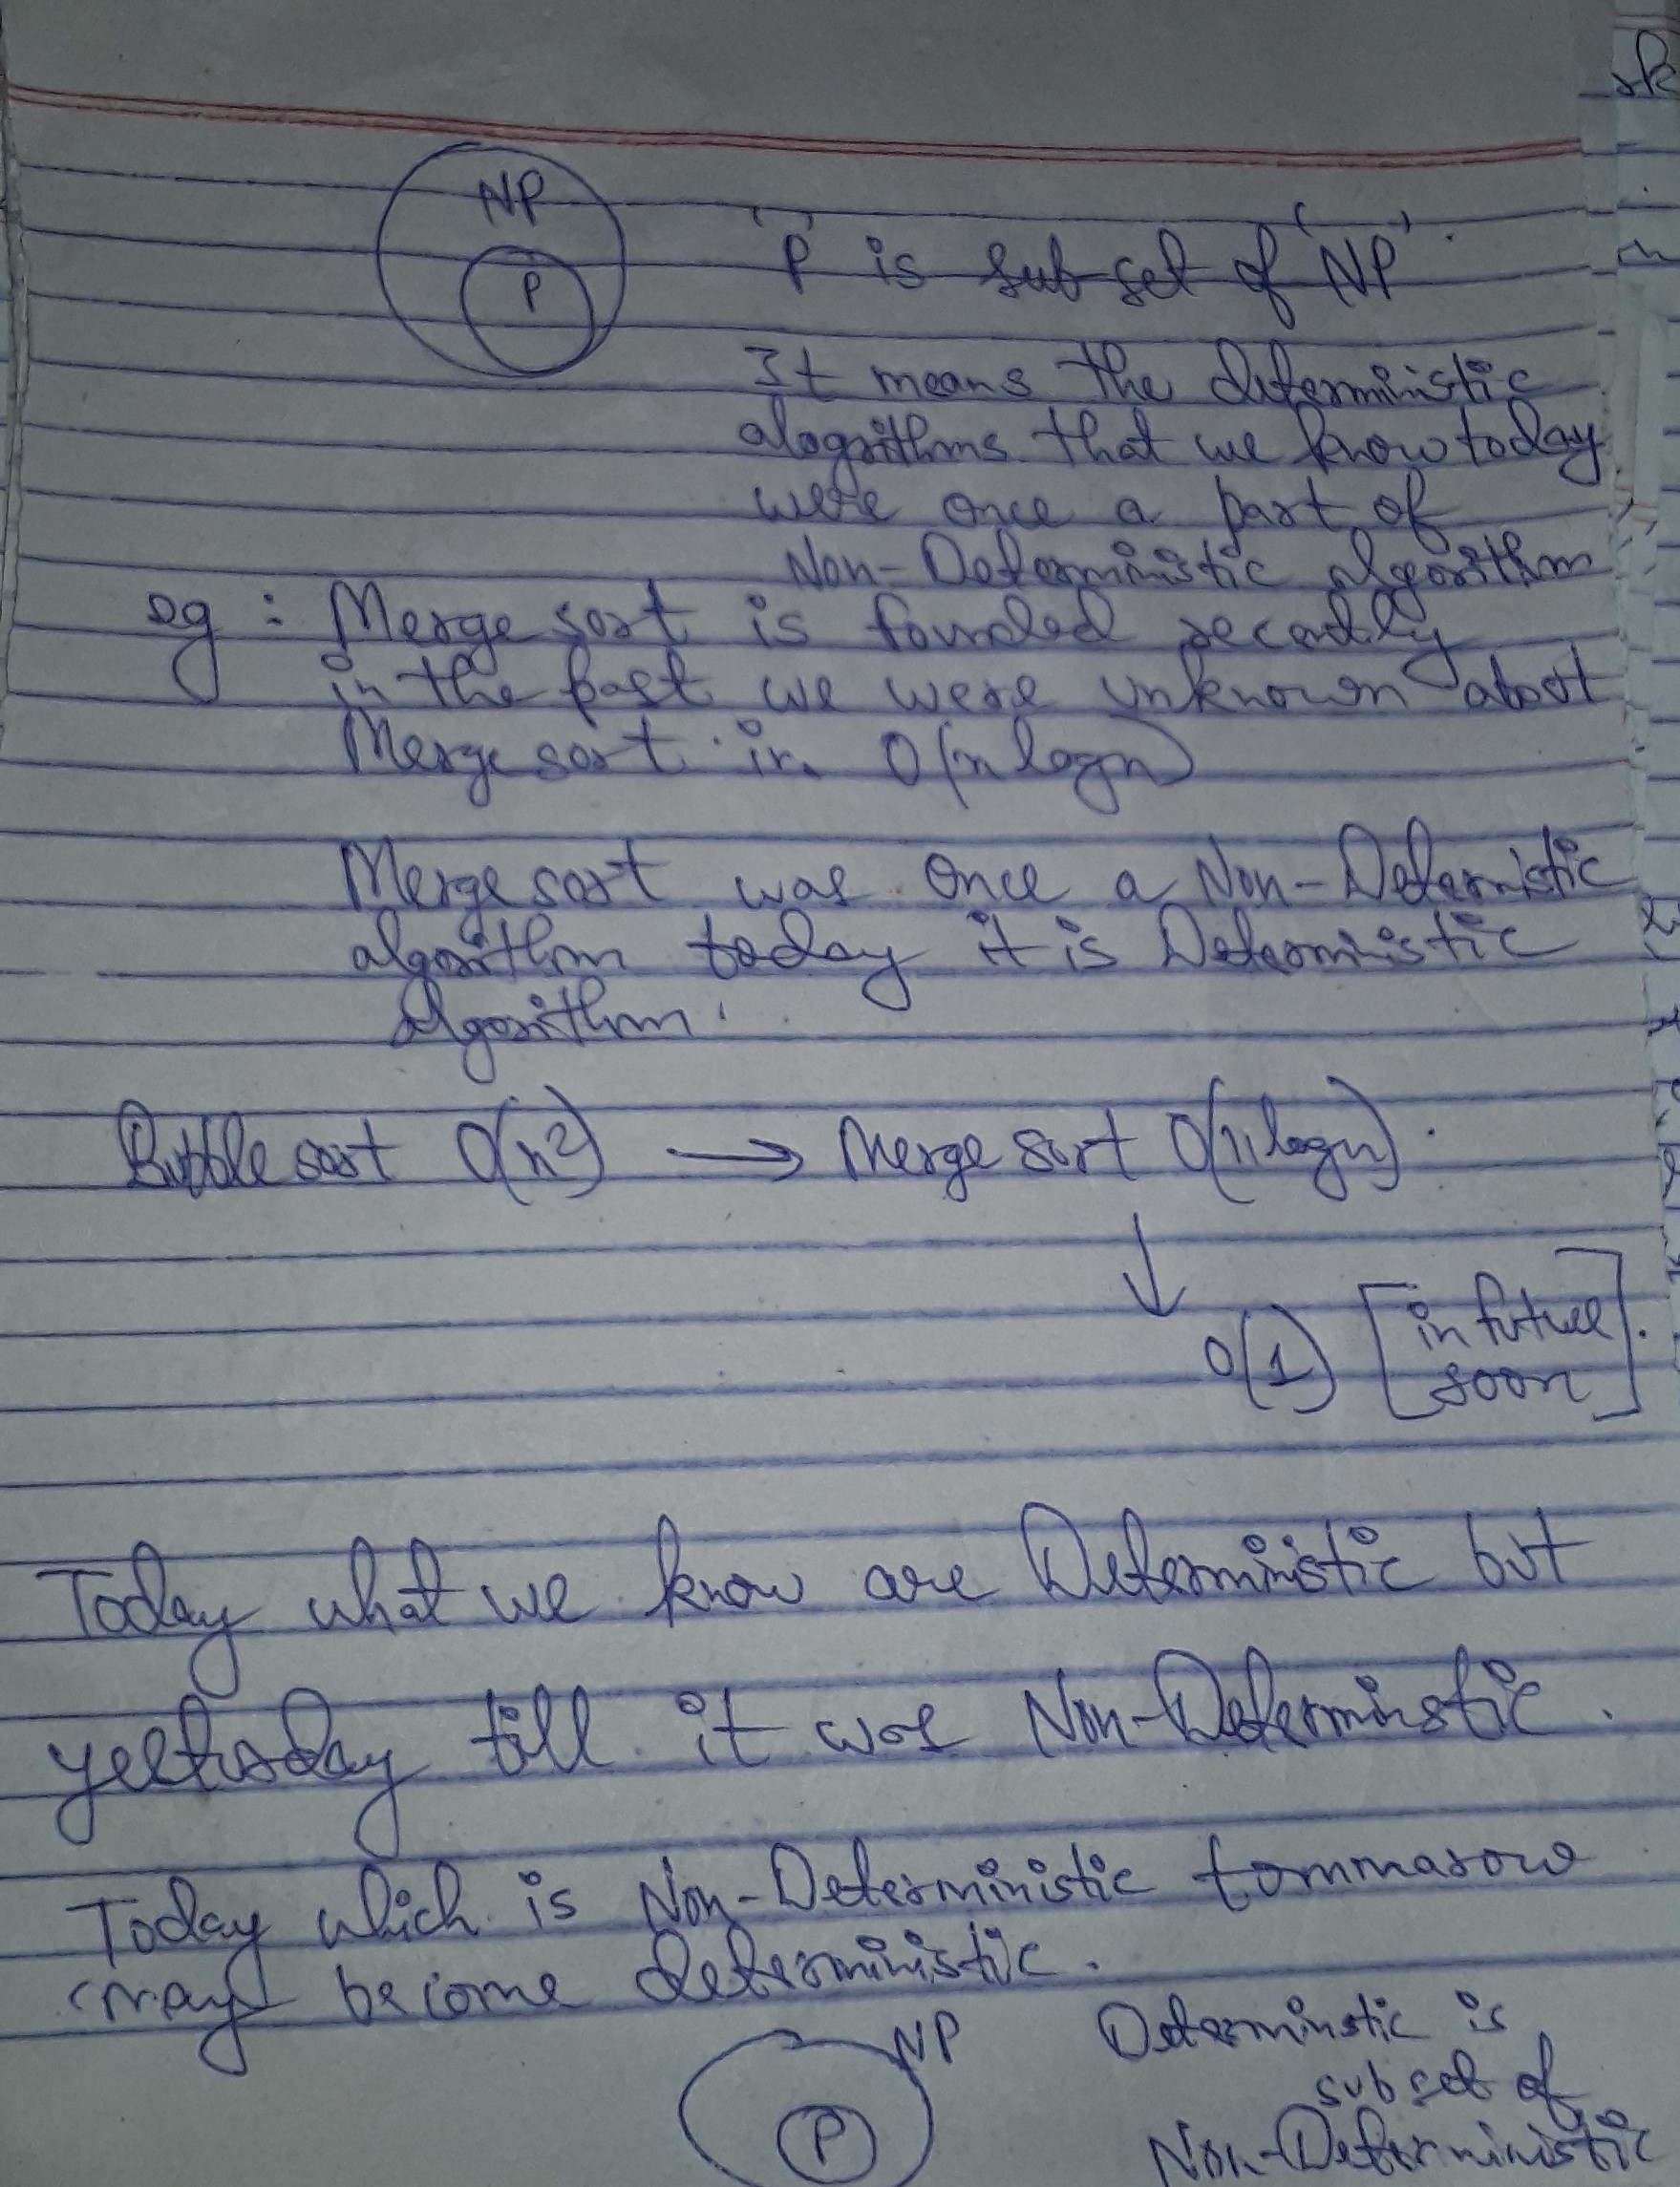 NP
P
'P' is subset of 'NP'.
It means the deterministic
alogrithms that we know today
were once a part of
Non-Deterministic algorithm
eg : Merge sort is founded
in the past we were unknown about
Merge sort in O(n logn)
Merge sort was once a Non-Determistic
algorithm today it is Deterministic
Algorithm.
Bubble sort O(n2) → Merge sort O(n logn).
↓
O(1) [in future
soon].
Today what we know are Deterministic but
yesterday till it was Non-Determinstic.
Today which is Non-Deterministic tommarow
may become deterministic.
NP
P
Determinstic is
subset of
Non-Deterministic